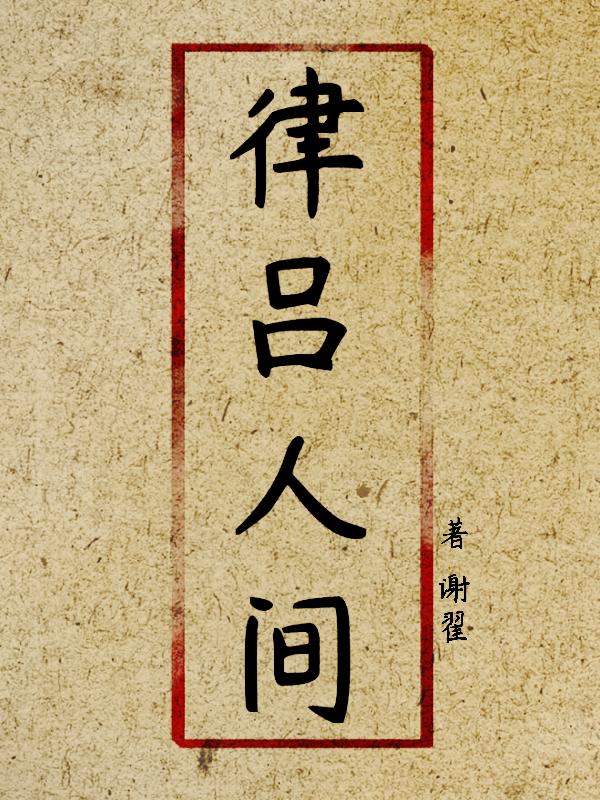 律吕人间
著 谢翟